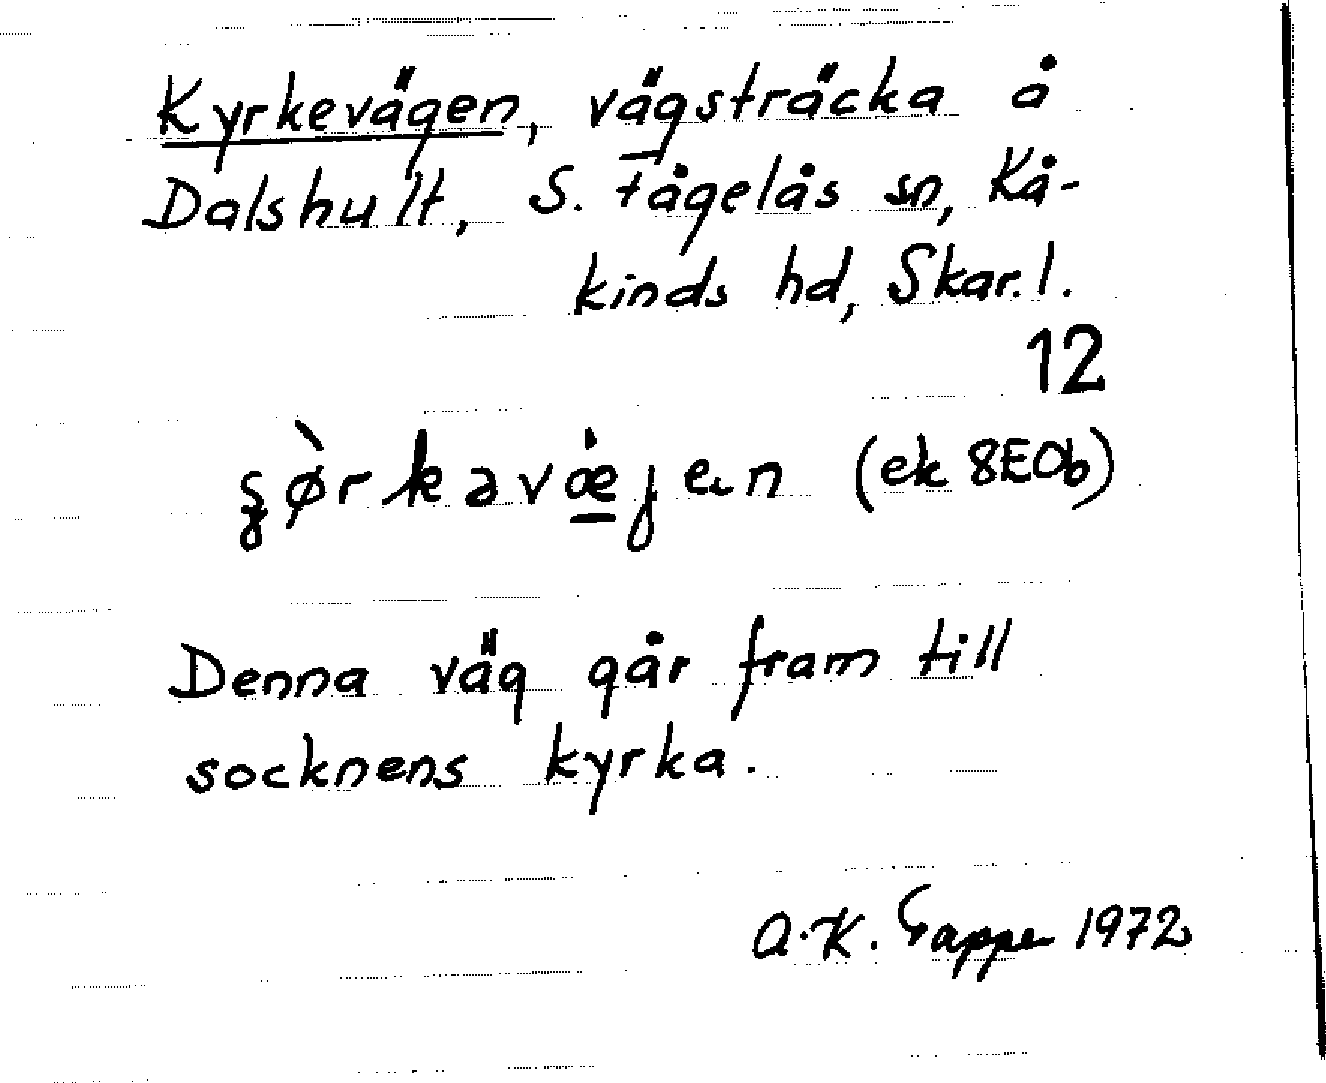 Kyrkevägen, vägsträcka å
Dalshult, S. Fågelås sn, Kå-
kinds hd, Skar. l.
12
(ek 8E0b)
Denna väg går fram till
socknens kyrka.
A.K. 1972